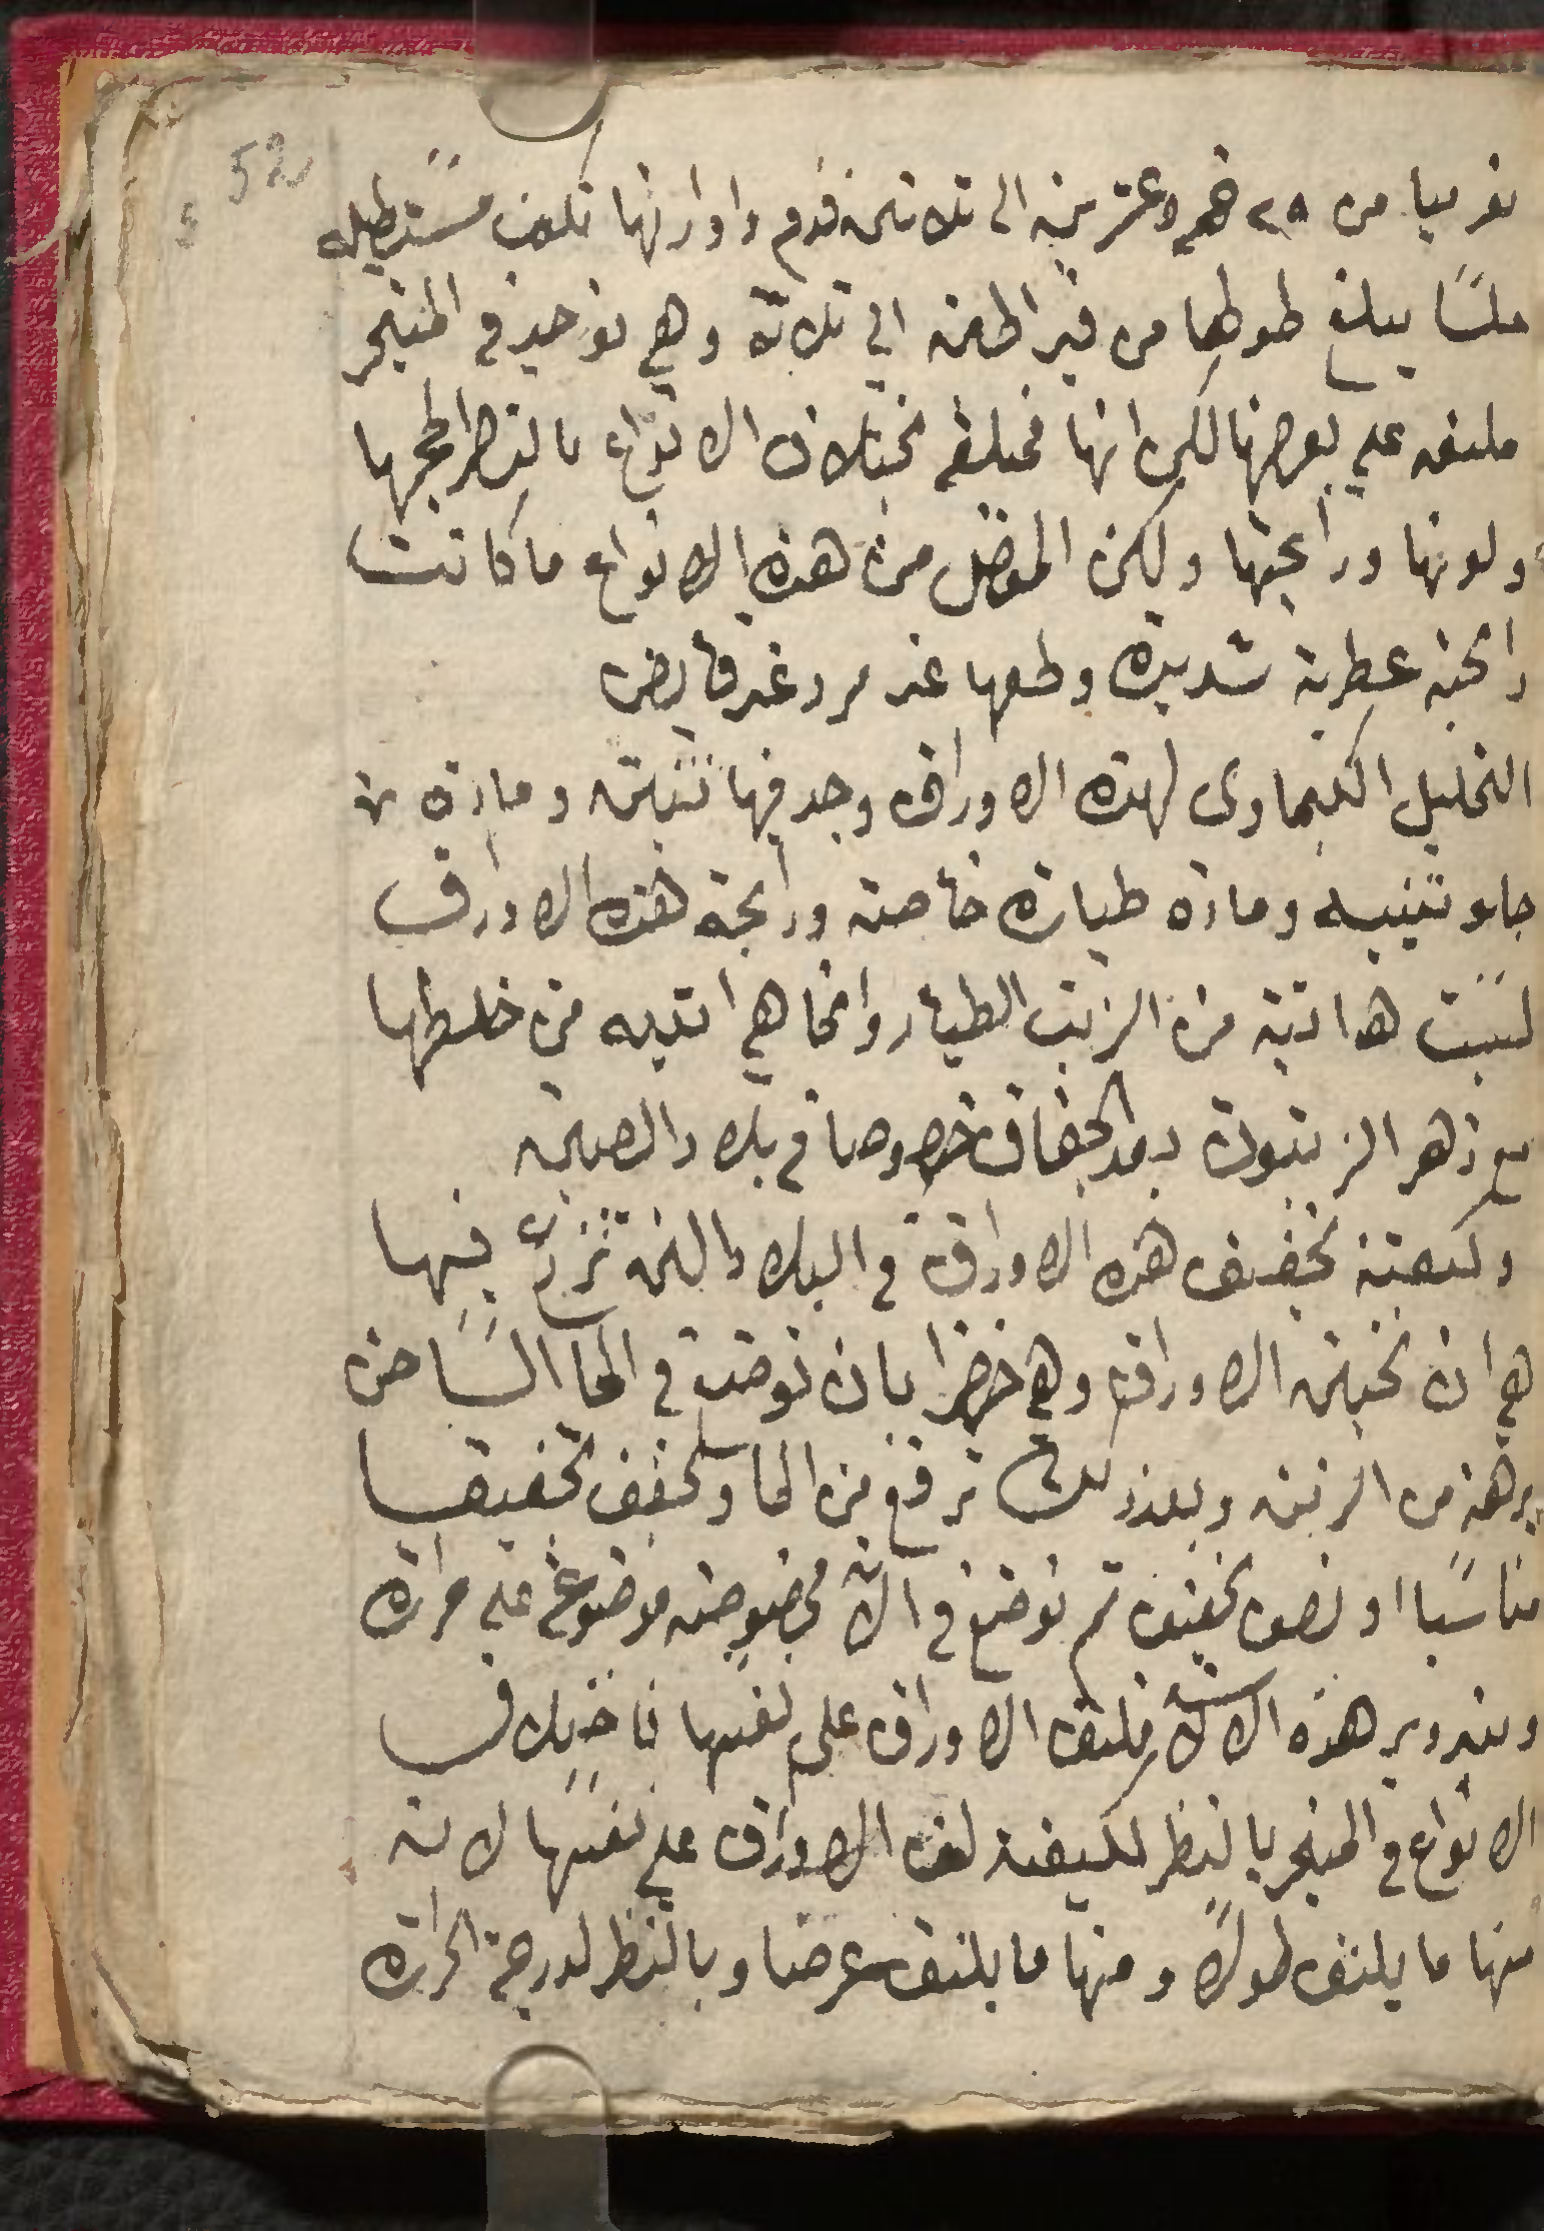 52
تقريبا من ٢٥ خمسه وعشرين الى تلاتين قدم واوراقها تكون مستطيله
ملسا يبلغ طولها من قيراطين الى تلاتة وهي توجد في المتجر
ملتفه على بعضها لكن انها مختلفه بختلاف الانواع بالنظر لحجمها
ولونها ورائحتها ولكن المفضل من هذه الانواع ما كانت
رائحته عطرية شديده وطعمها غير مر وغير قابض
التحليل الكيماوى لهذه الاوراق وجد فيها تنين ومادة
جلوتنيه ومادة طياره خاصة ورائحة هذه الاوراق
ليست هي اتية من الزيت الطيار وانما هي اتيه من خلطها
مع زهر الزيتون بعد الجفاف خصوصا في بلاد الصين
وكيفية تجفيف هذه الاوراق في البلاد التي تزرع فيها
هي ان تجني الاوراق وهي خضرا بان توضع في الما الساخن
برهة من الزمن وبعد ذلك ترفع من الما وتجفف تجفيفا
مناسبا او نصف تجفيف ثم توضع في الاة مخصوصه موضوعه على حرارة
وبتدوير هذه الالة تلتف الاوراق على نفسها فاختلاف
الانواع في المتجر بالنظر لكيفية لف الاوراق على نفسها لانه
منها ما يلتف طولا ومنها ما يلتف عرضا وبالنظر لدرجة الحرارة